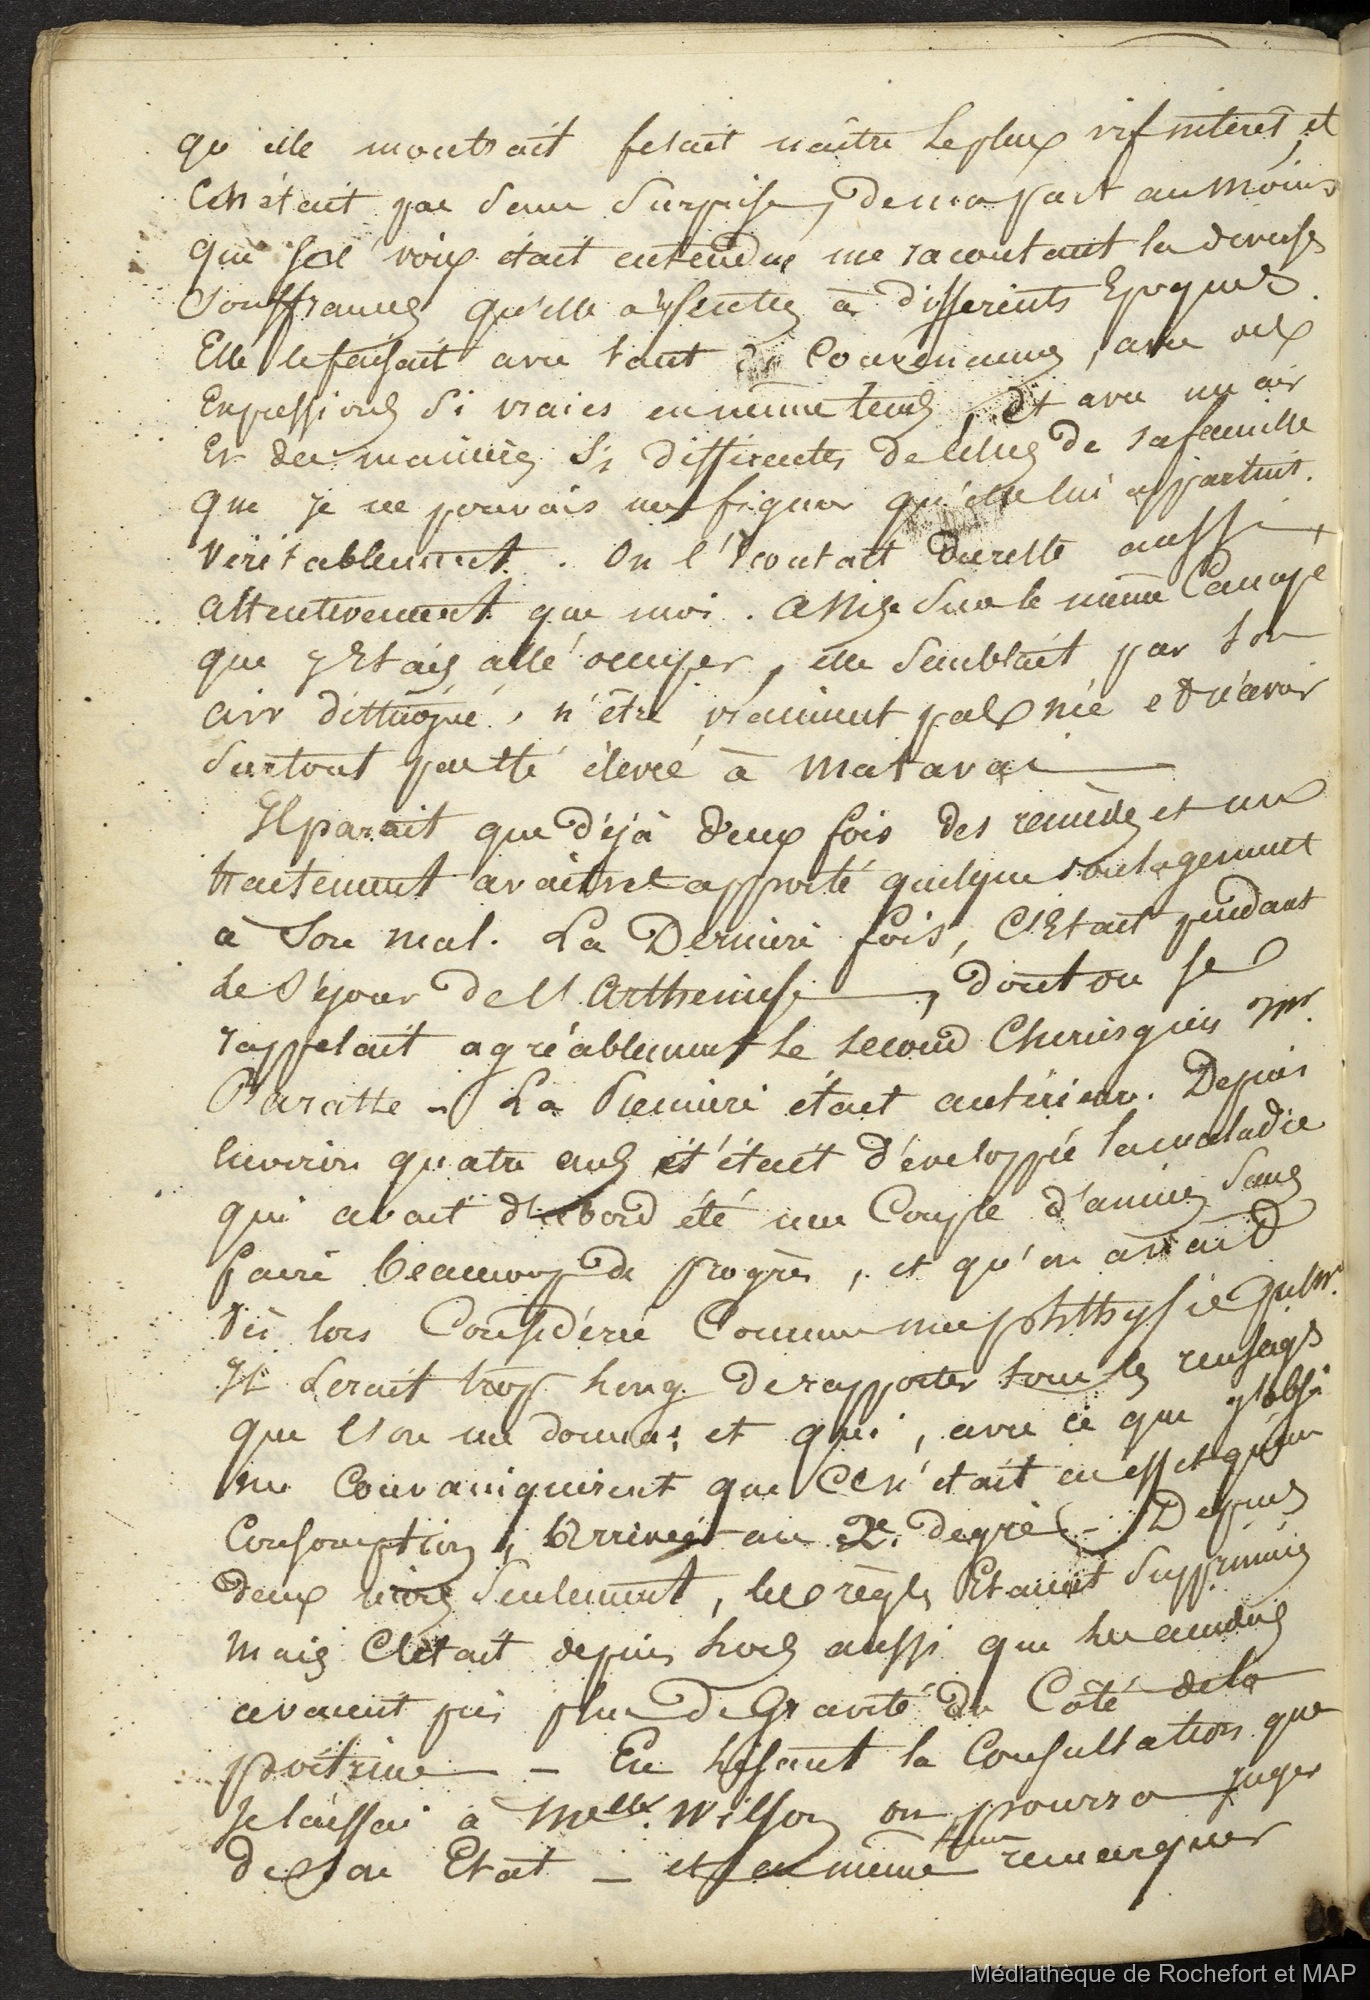 qu'elle montrait fesait naître le plus vif interêt, et
ce n'était pas sans surprise, de ma part au moins
que sa voix était entendue me racontant les diverses
souffrances qu'elle a ressenties à differents Epoques.
Elle le faisait avec tant de convenances, avec des
Expressions si vraies en même tems, et avec un air
Et des manières si differentes de celles de sa famille
que je ne pouvais me figurer qu'elle lui appartint
véritablement. On l'écoutait du reste aussi
attentivement que moi. assise sur le même Canapé
que j'Etais allé occuper, elle semblait par son
air distingué, n'être vraiment pas née et n'avoir
surtout pas été élevée à Matavai
Il parait que déjà deux fois des remèdes et un
traitement avaient apporté quelque soulagement
à son mal. La Dernière fois, c'Etait pendant
le séjour de l'Arthemise, dont on se
rappelait agréablement le second Chirurgien Mr.
Baratte - La Première était antérieure. Depuis
Environ quatre ans s'était développée la maladie
qui avait d'abord été une Couple d'années sans
faire beaucoup de progrès, et qu'on avait
dès lors Considérée Comme une phthysie pulm.
Il serait trop long de rapporter tous les renseigts
que l'on me donna; et qui, avec ce que j'obs.
me convainquirent que ce n'était en effet qu'une
Consomption, arrivée au 2e. degré - Depuis
deux mois seulement, les règles Etaient supprimées
mais c'était depuis lors aussi que les accidens
avaient pris plus de gravité du Côté de la
poitrine - En lisant la Consultation que
je laissai à Melle. Wilson on pourra juger
de son Etat - et en même tems remarquer
Médiathèque de Rochefort et MAP